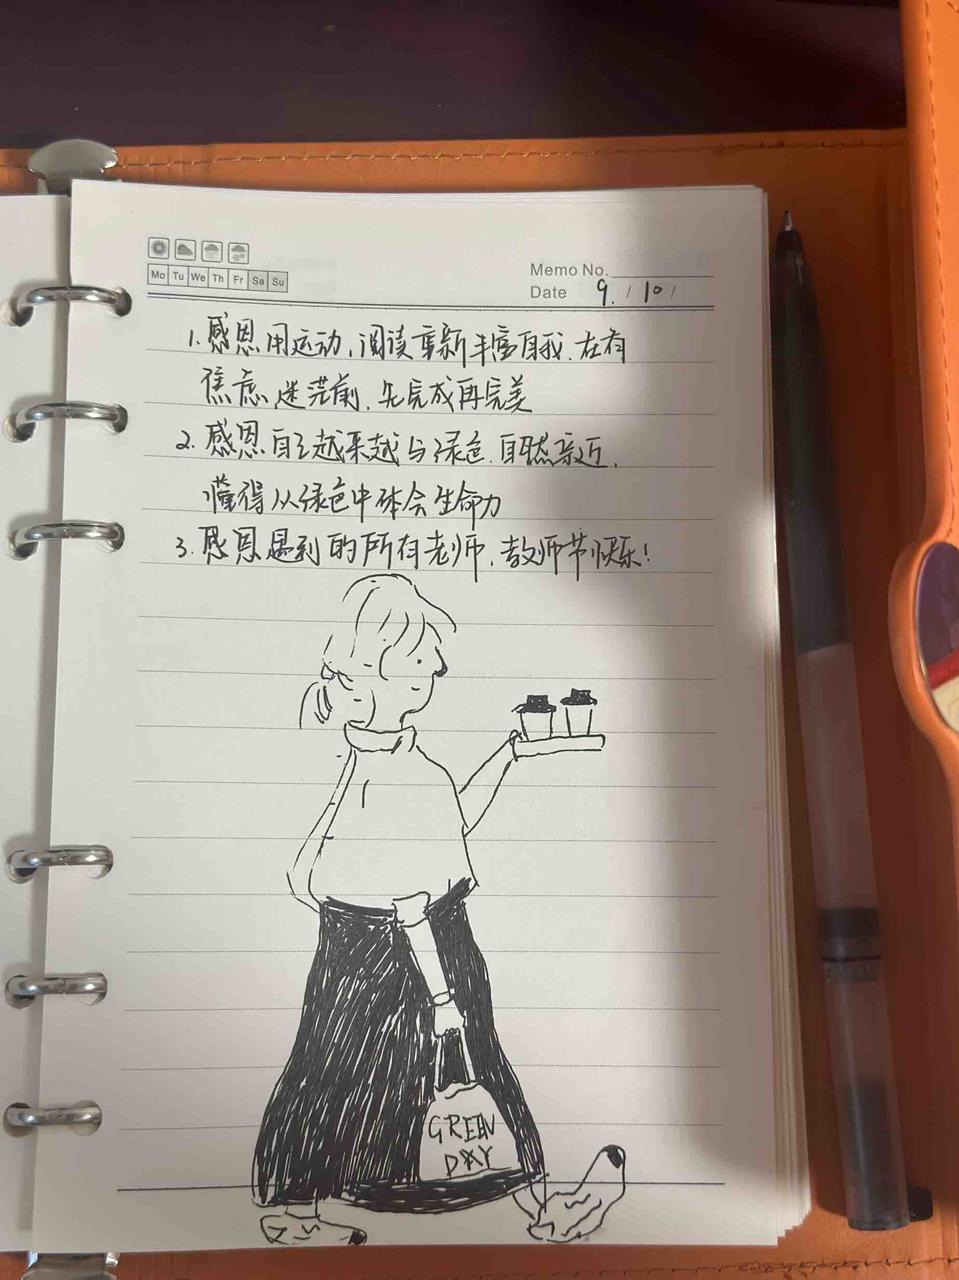 Mo Tu We Th Fr Sa Su
Memo No.
Date 9. / 10 /
1. 感恩用运动、阅读重新丰富自我、在有
焦虑迷茫前、先完成再完美
2. 感恩自己越来越与绿色、自然亲近、
懂得从绿色中体会生命力
3. 感恩遇到的所有老师、教师节快乐!
GREEN
DAY